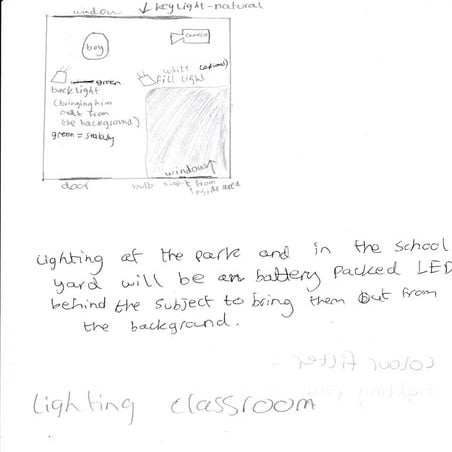 window key light - natural
boy
camera
green
back light
(bringing him
out from
the background)
green =
white (optional)
fill light
window
door bulb light from
inside area
Lighting at the park and in the school
yard will be an battery packed LED
behind the subject to bring them out from
the background.
colour filter -
lighting
Lighting classroom